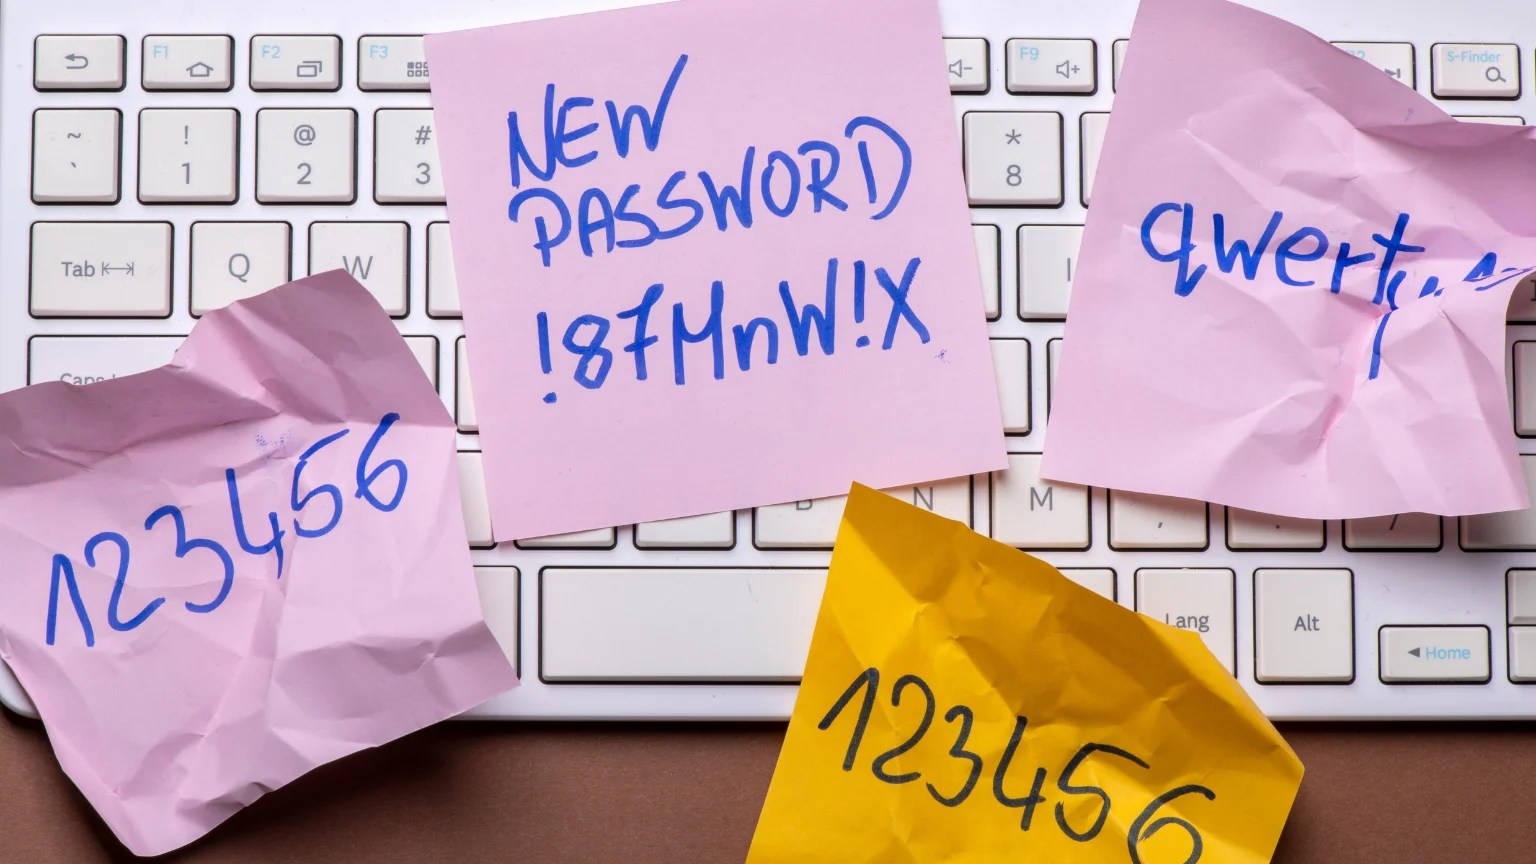 F1
F2
F3
F9
S-Finder
~
`
!
1
@
2
#
3
*
8
Tab
Q
W
NEW
PASSWORD
!87MnW!X
123456
N
M
,
Lang
Alt
Home
123456